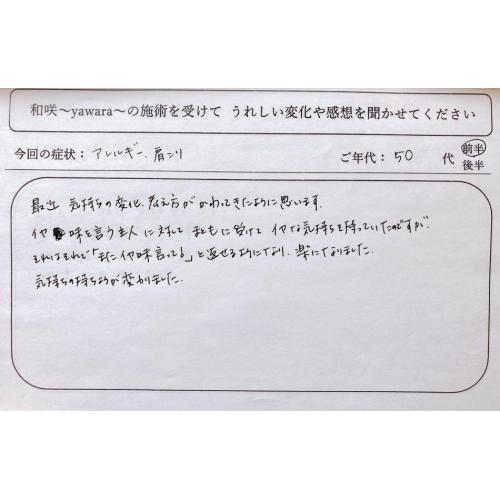 和咲〜yawara〜の施術を受けて うれしい変化や感想を聞かせてください
今回の症状：アレルギー、肩こり ご年代：50 代 前半 後半
最近 気持ちの変化、考え方がかわってきたように思います。
イヤ味を言う主人に対して まともに受けて イヤな気持ちを持っていたのですが、
それはそれで「またイヤ味言ってる」と返せるようになり、楽になりました。
気持ちの持ちようが変わりました。